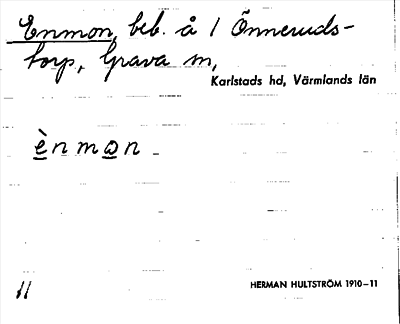 Enmon, beb. å 1 Önneruds-
torp, Grava sn,
Karlstads hd, Värmlands län
ènmon
11
HERMAN HULTSTRÖM 1910-11